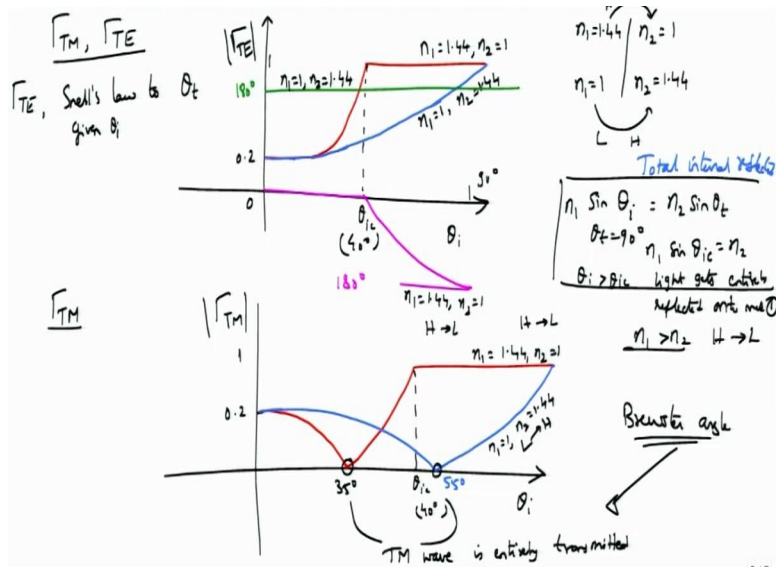 Γ_TM, Γ_TE
Γ_TE, Snell's law to θ_t
given θ_i
|Γ_TE|
1
180°
0.2
0
n₁=1, n₂=1.44
n₁=1.44, n₂=1
n₁=1, n₂=1.44
90°
θ_ic
(40°)
θ_i
180°
n₁=1.44, n₂=1
H→L
n₁=1.44 / n₂=1
n₁=1 / n₂=1.44
L H
Total internal
n₁ sin θ_i = n₂ sin θ_t
θ_t=90°
n₁ sin θ_ic = n₂
θ_i > θ_ic light gets entirely
reflected onto med ①
n₁ > n₂ H→L
Γ_TM
|Γ_TM|
1
0.2
H→L
n₁=1.44, n₂=1
n₁=1, n₂=1.44
L→H
35°
θ_ic
(40°)
55°
θ_i
TM wave is entirely transmitted
Brewster angle